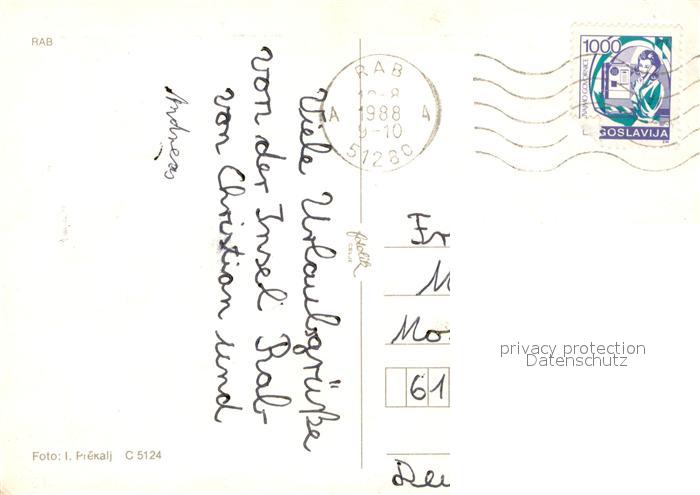 RAB
Viele Urlaubsgrüße
von der Insel Rab
von Christian und
Andreas
Foto: I. Prěkalj C 5124
fotolik
RAB
1988
A A
9-10
51280
1000
JAVNE GOVORNICE
JUGOSLAVIJA
Fr
M
Mo
61
Deu
privacy protection
Datenschutz